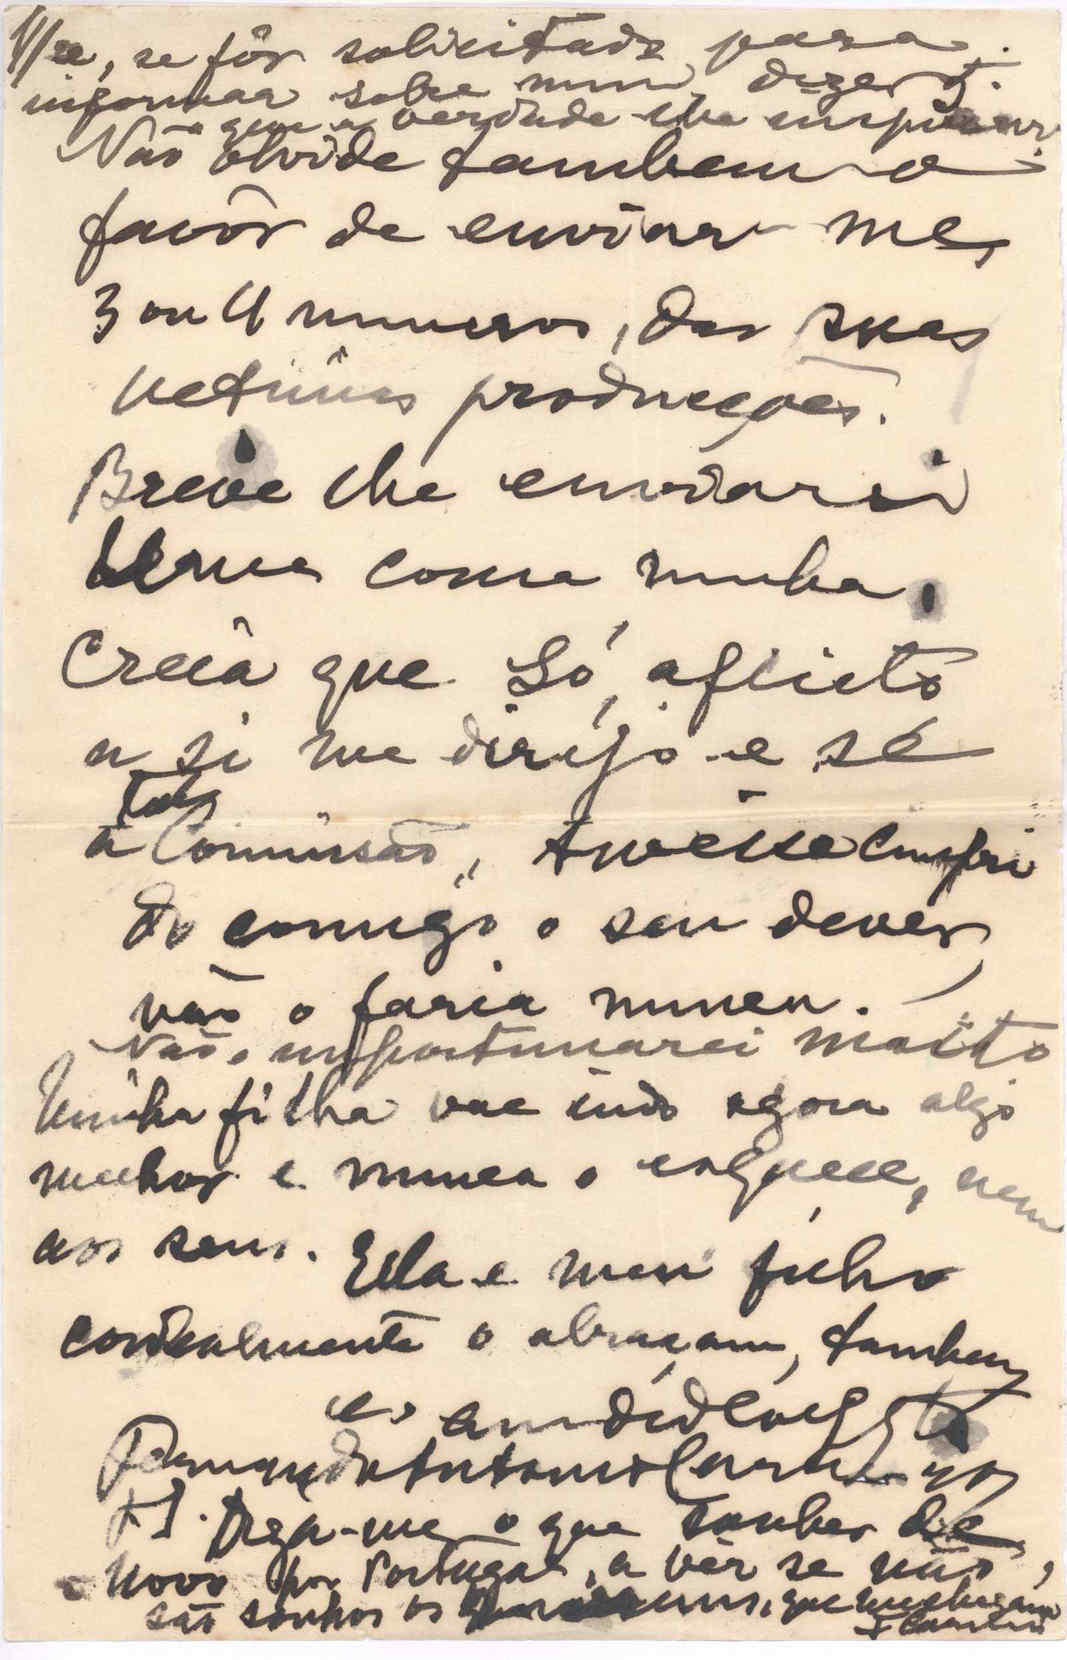 V/ se, se fôr solicitado para
informar sobre mim, dizer
que a verdade lhe inspirar.
Não olvide tambem o
favôr de enviar-me,
3 ou 4 numeros, das suas
ultimas producções.
Breve lhe enviarei
Uma coisa minha.
Creia que só, aflicto
a si me dirijo e se
tal
a Comissão, tivesse cumpri
do comigo o seu dever,
não o faria nunca.
Não o importunarei muito
Minha filha vae indo agora algo
melhor e nunca o esquece, nem
aos seus. Ella e meu filho
cordealmente o abraçam, tambem
e o
Fernando Antonio
P.S. Diga-me o que souber de
novo por Portugal, a vêr se não
são sonhos os que me chegam